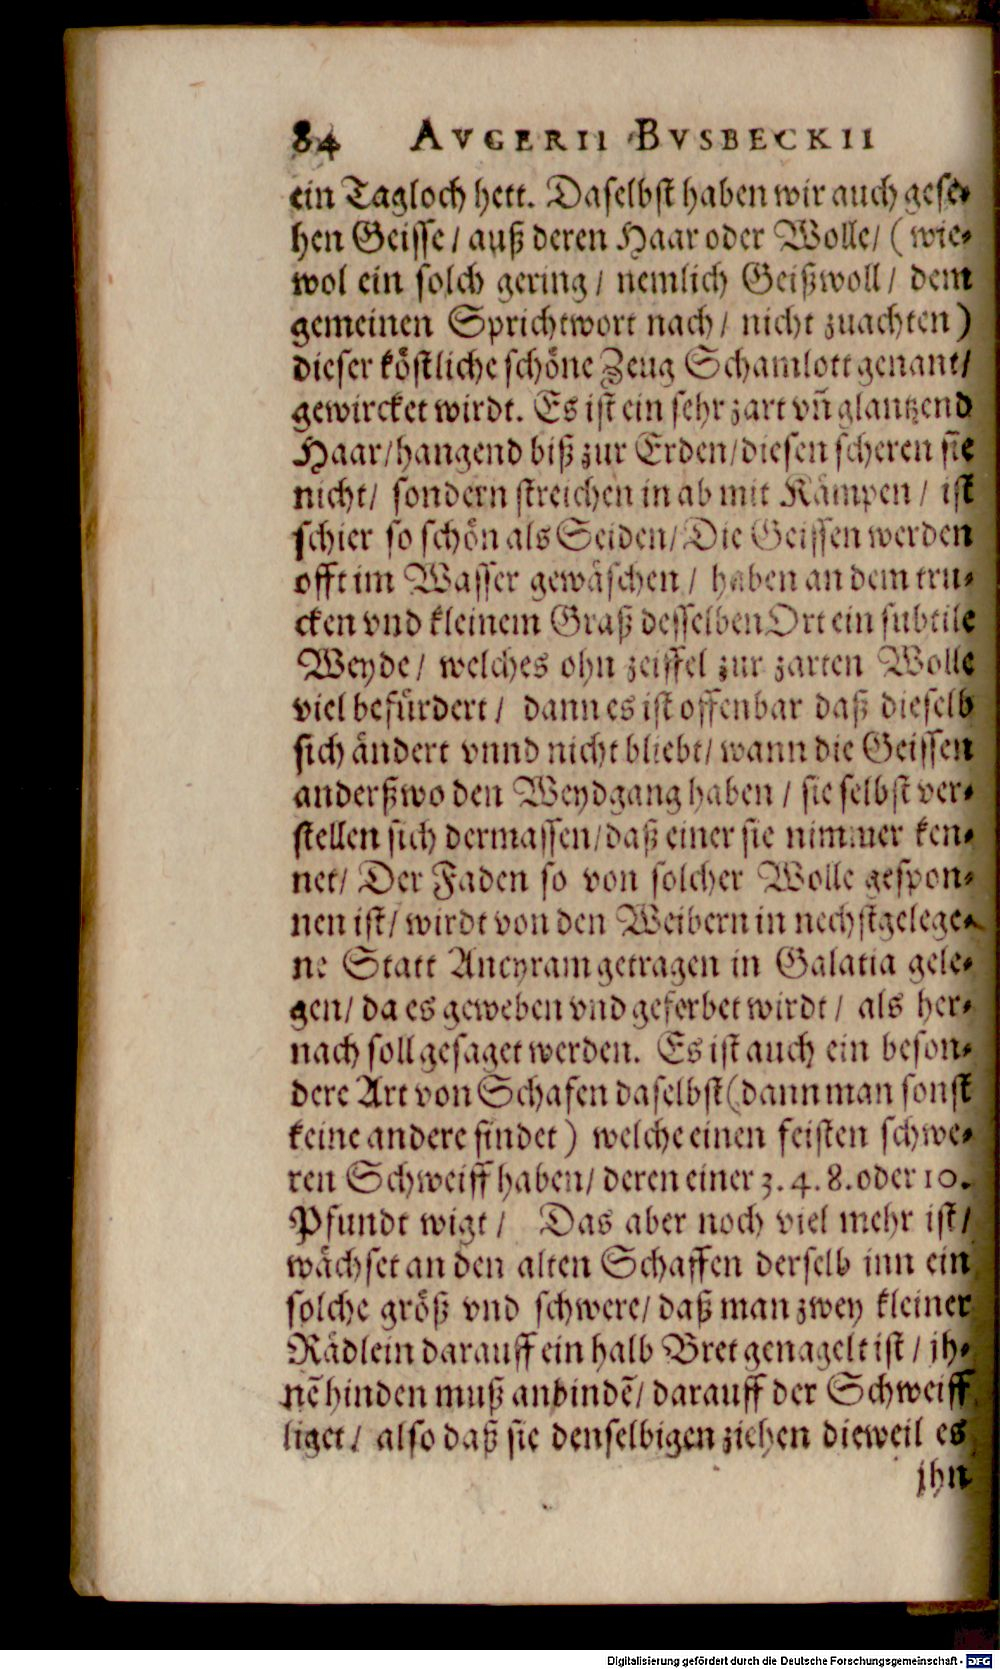 84 AVGERII BVSBECKII
ein Tagloch hett. Daselbst haben wir auch gese-
hen Geisse / auß deren Haar oder Wolle / ( wie-
wol ein solch gering / nemlich Geißwoll / dem
gemeinen Sprichtwort nach / nicht zuachten )
dieser köstliche schöne Zeug Schamlott genant /
gewircket wirdt. Es ist ein sehr zart vn̄ glantzend
Haar / hangend biß zur Erden / diesen scheren sie
nicht / sondern streichen in ab mit Kämpen / ist
schier so schön als Seiden / Die Geissen werden
offt im Wasser gewäschen / haben an dem tru-
cken vnd kleinem Graß desselben Ort ein subtile
Weyde / welches ohn zeiffel zur zarten Wolle
viel befürdert / dann es ist offenbar daß dieselb
sich ändert vnnd nicht bliebt / wann die Geissen
anderßwo den Weydgang haben / sie selbst ver-
stellen sich dermassen / daß einer sie nimmer ken-
net / Der Faden so von solcher Wolle gespon-
nen ist / wirdt von den Weibern in nechstgelege-
ne Statt Ancyram getragen in Galatia gele-
gen / da es geweben vnd geferbet wirdt / als her-
nach soll gesaget werden. Es ist auch ein beson-
dere Art von Schafen daselbst ( dann man sonst
keine andere findet ) welche einen feisten schwe-
ren Schweiff haben / deren einer 3. 4. 8. oder 10.
Pfundt wigt / Das aber noch viel mehr ist /
wächset an den alten Schaffen derselb inn ein
solche größ vnd schwere / daß man zwey kleiner
Rädlein darauff ein halb Bret genagelt ist / jh-
nē hinden muß anbindē / darauff der Schweiff
liget / also daß sie denselbigen ziehen dieweil es
jhn
Digitalisierung gefördert durch die Deutsche Forschungsgemeinschaft - DFG